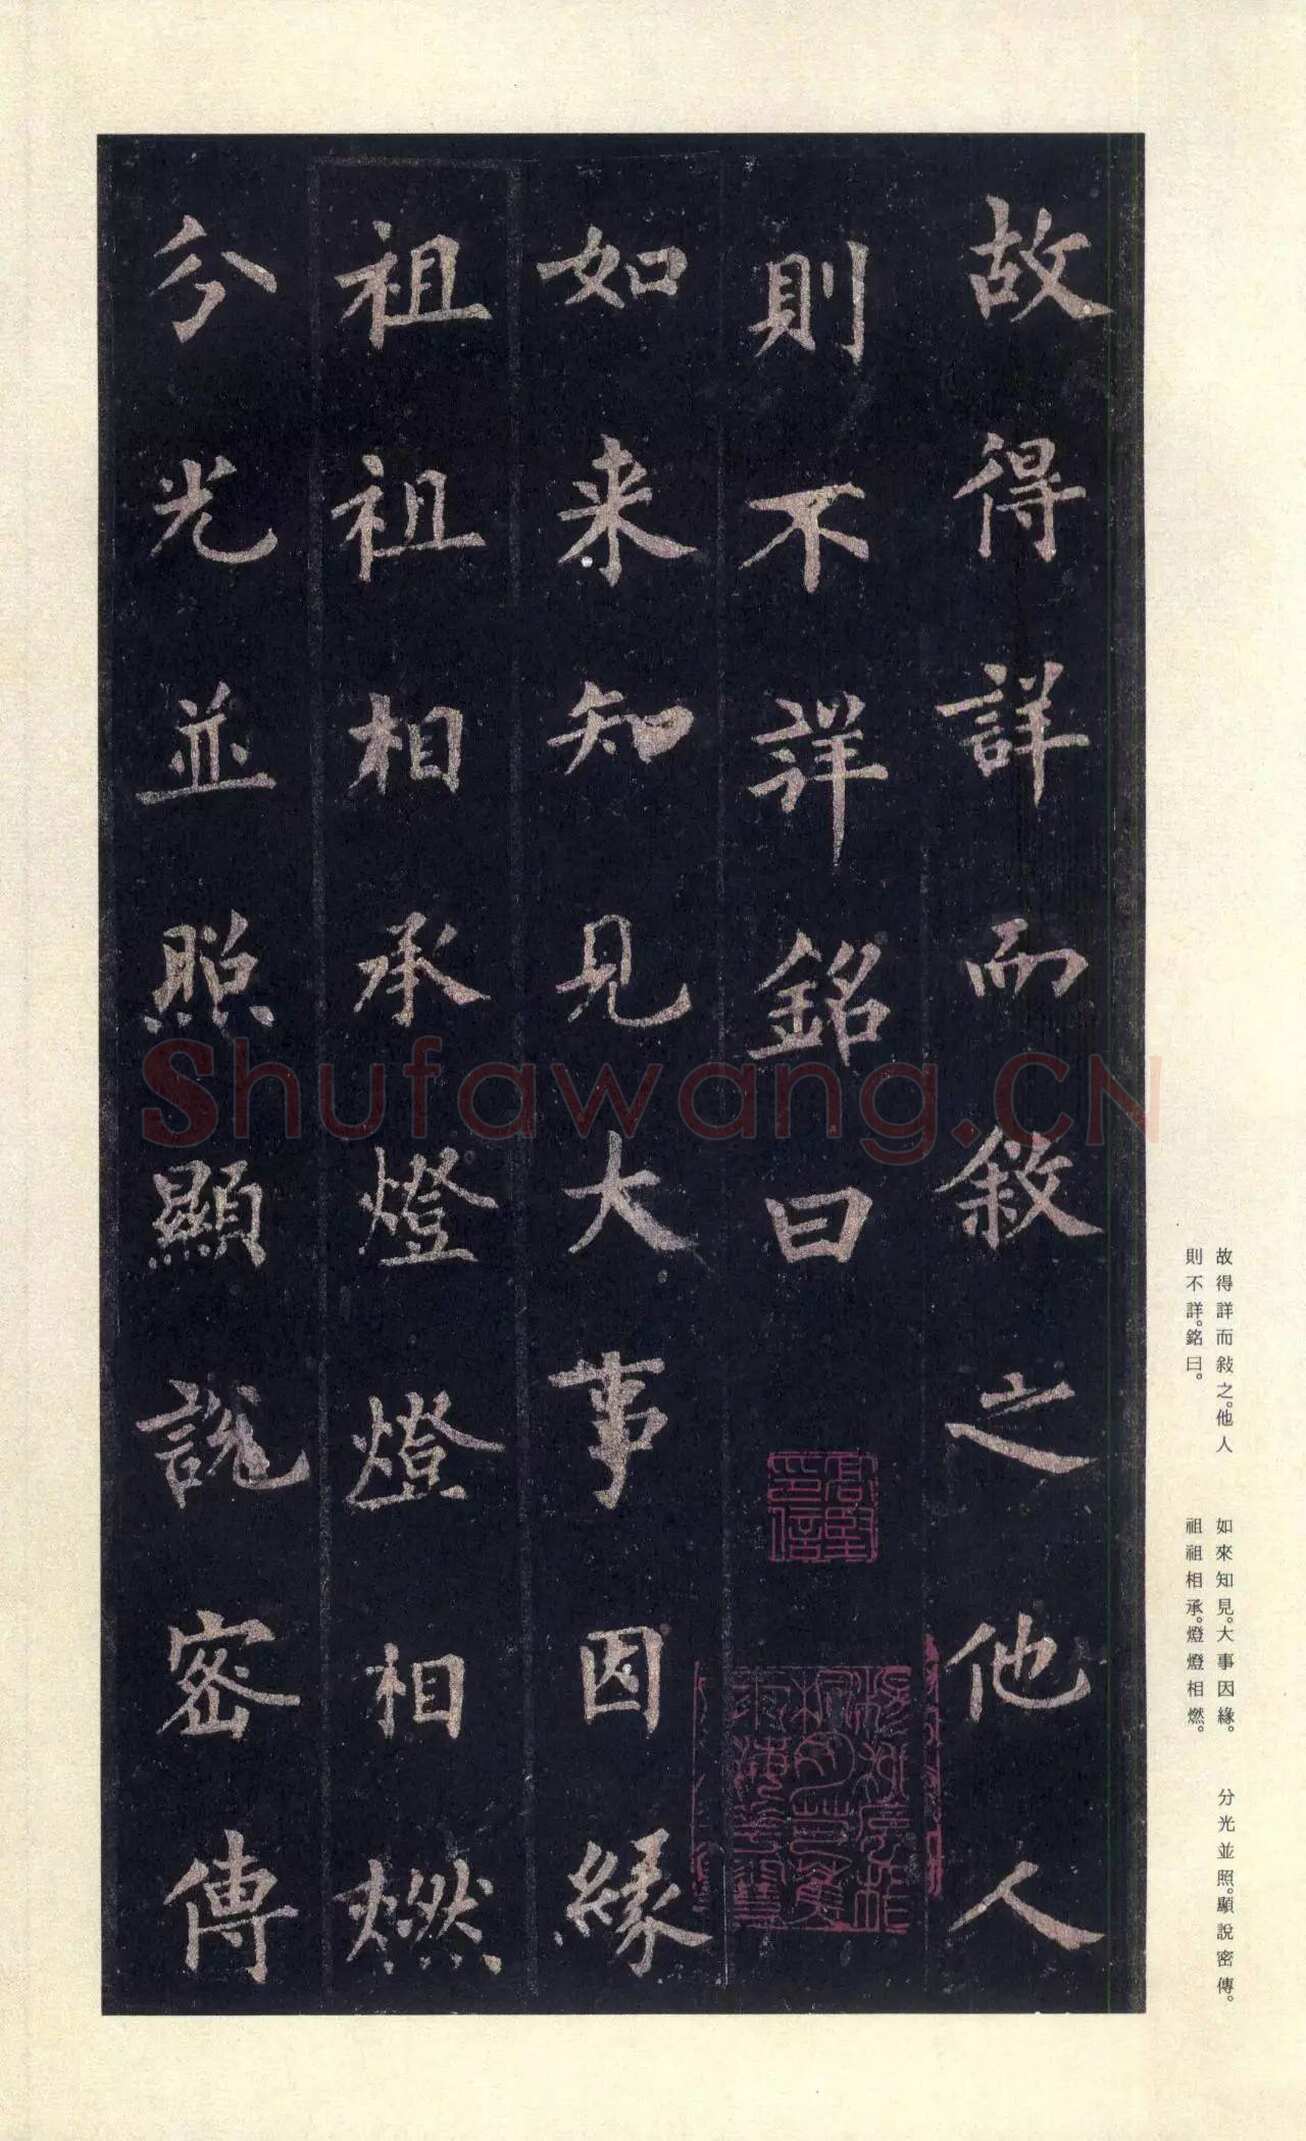 故得詳而敘之他人
則不詳銘曰
如来知見大事因緣
祖祖相承燈燈相燃
分光並照顯說密傳
Shufawang.CN
故得詳而敍之。他人
則不詳。銘曰。
如來知見。大事因緣。
祖祖相承。燈燈相燃。
分光並照。顯說密傳。